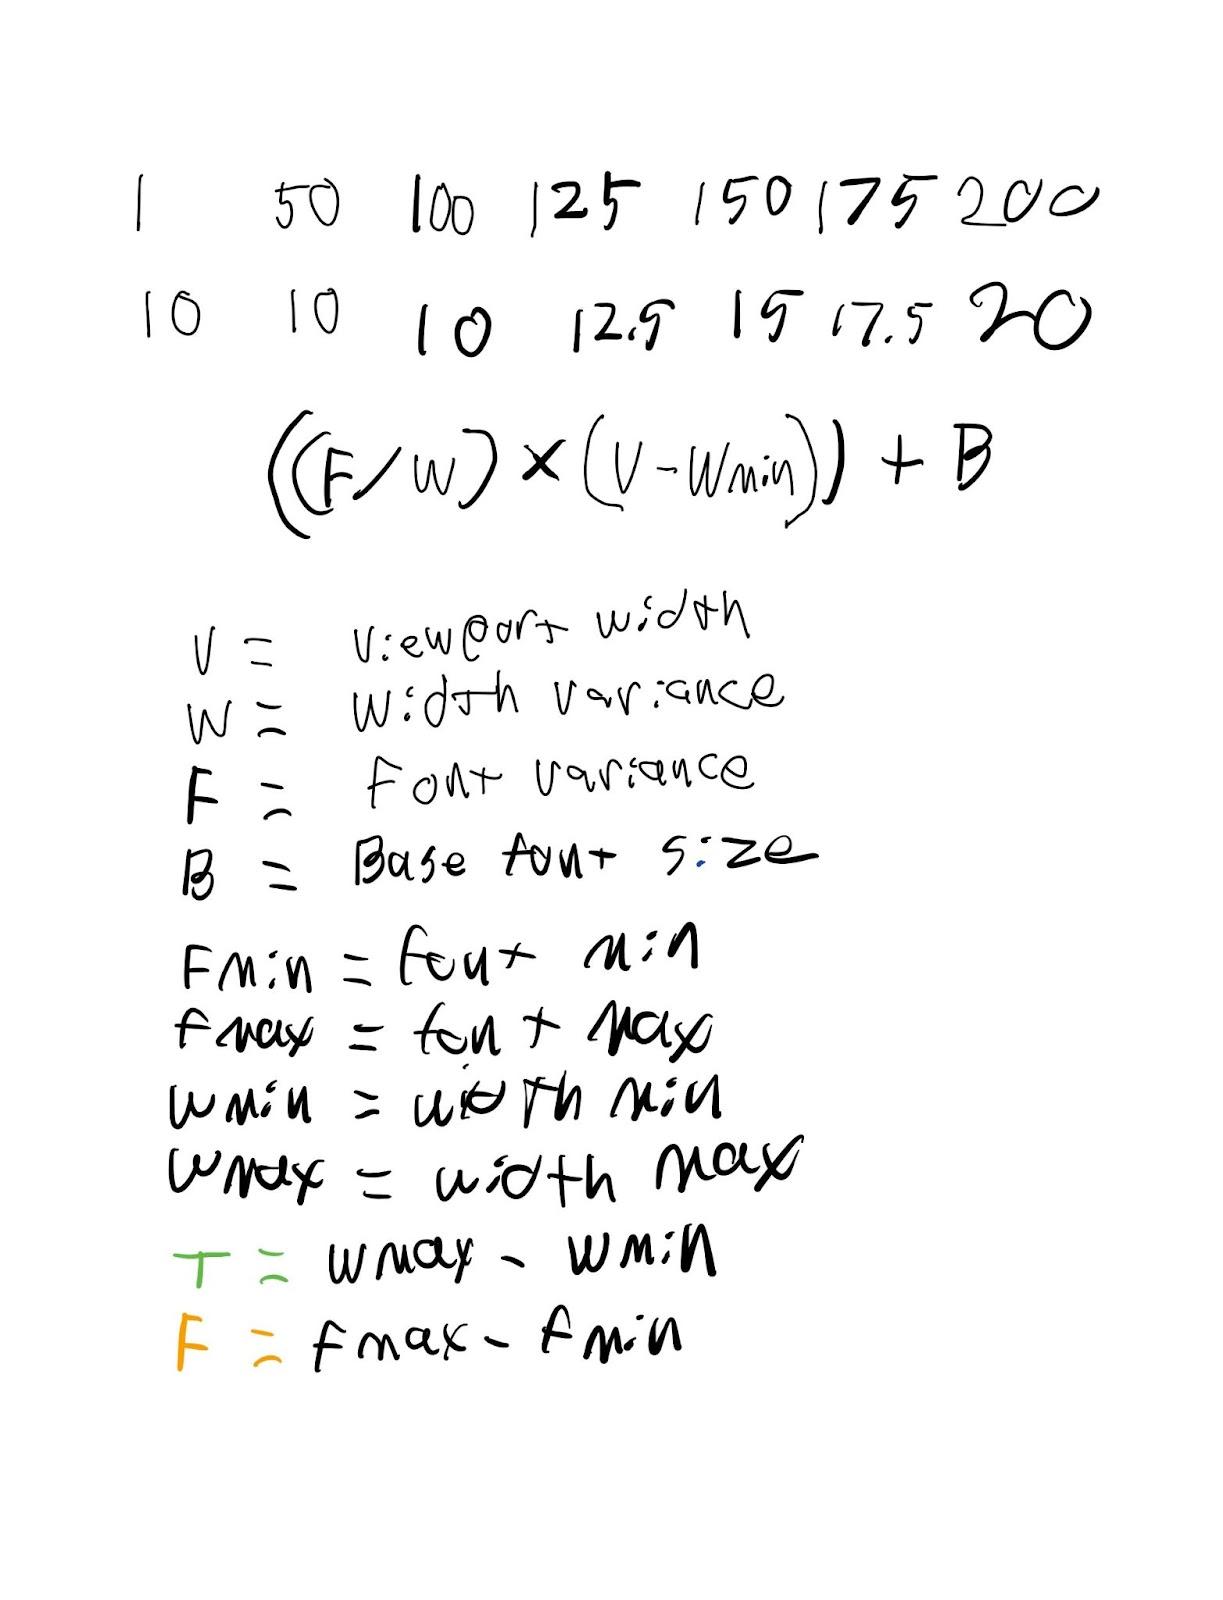 1 50 100 125 150 175 200
10 10 10 12.5 15 17.5 20
((F/W) × (V-Wmin)) + B
V = Viewport width
W = Width variance
F = Font variance
B = Base font size
Fmin = font min
fmax = font max
wmin = width min
wmax = width max
T = wmax - wmin
F = fmax - fmin